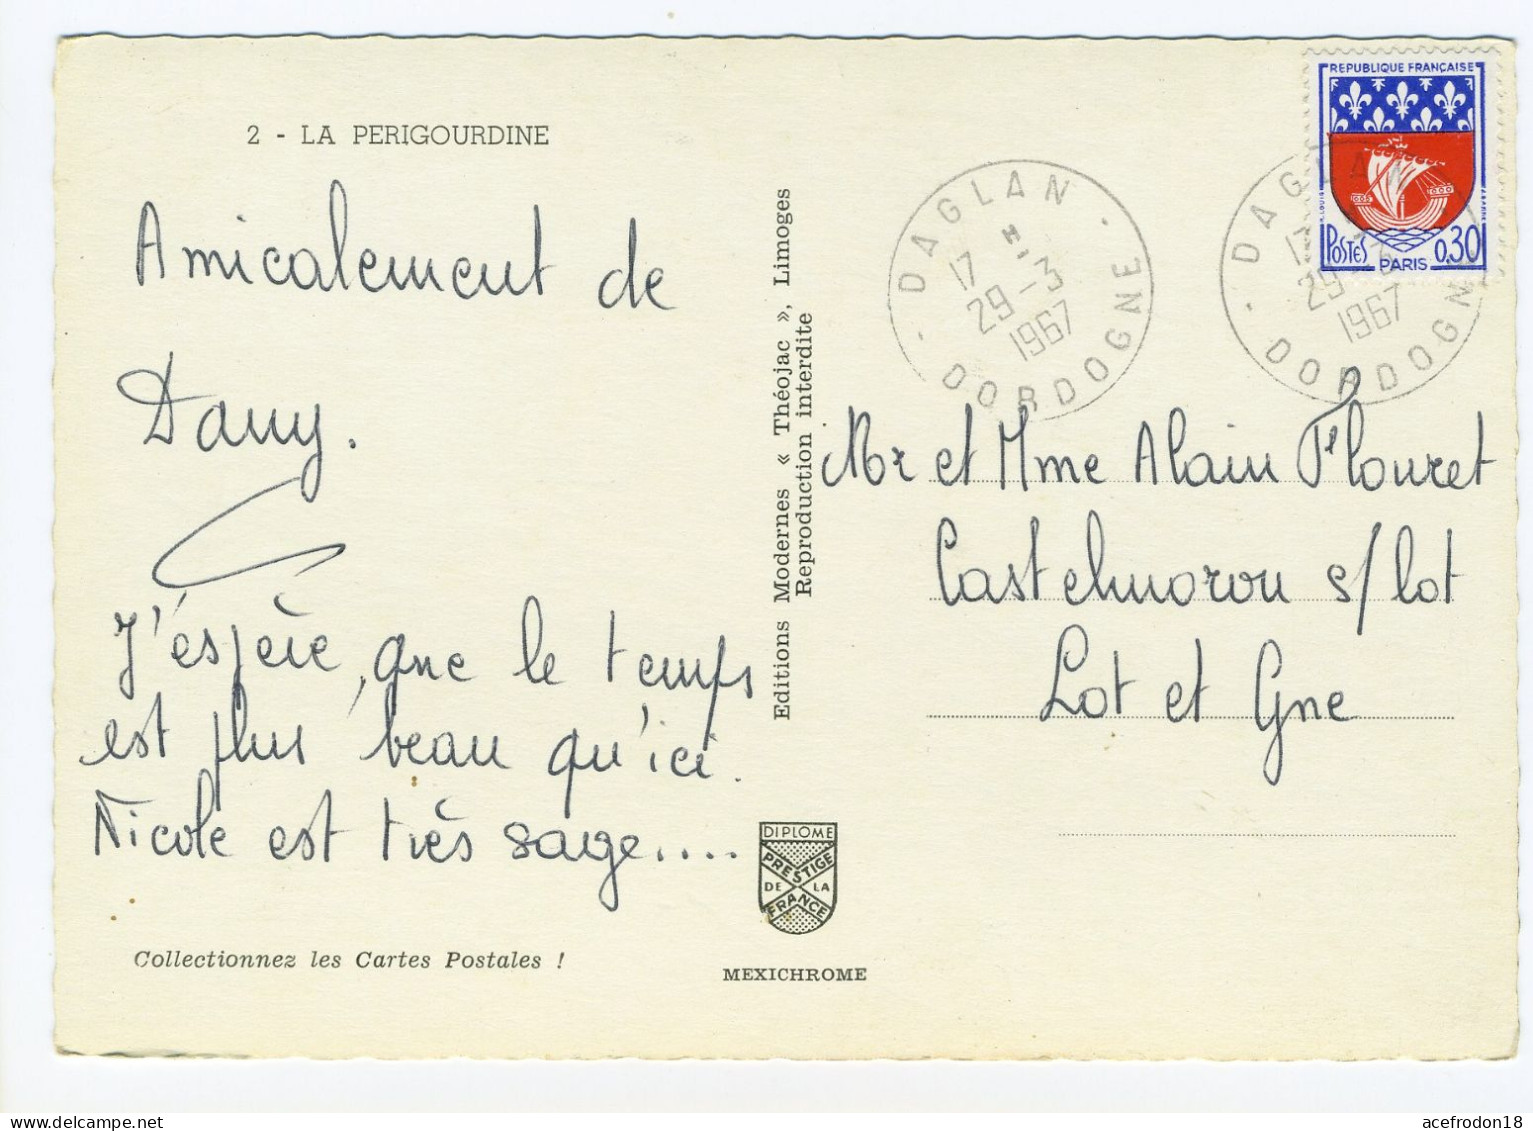 2 - LA PERIGOURDINE
Amicalement de
Dany.
J'éspère, que le temps
est plus beau qu'ici.
Nicole est très sage....
Collectionnez les Cartes Postales !
Editions Modernes « Théojac », Limoges
Reproduction interdite
DIPLOME
PRESTIGE
DE LA
FRANCE
MEXICHROME
DAGLAN
17 H
29-3
1967
DORDOGNE
REPUBLIQUE FRANÇAISE
POSTES
0,30
PARIS
DAGLAN
17
29-3
1967
DORDOGNE
Mr et Mme Alain Flouret
Castelmorou s/lot
Lot et Gne
delcampe.net
acefrodon18